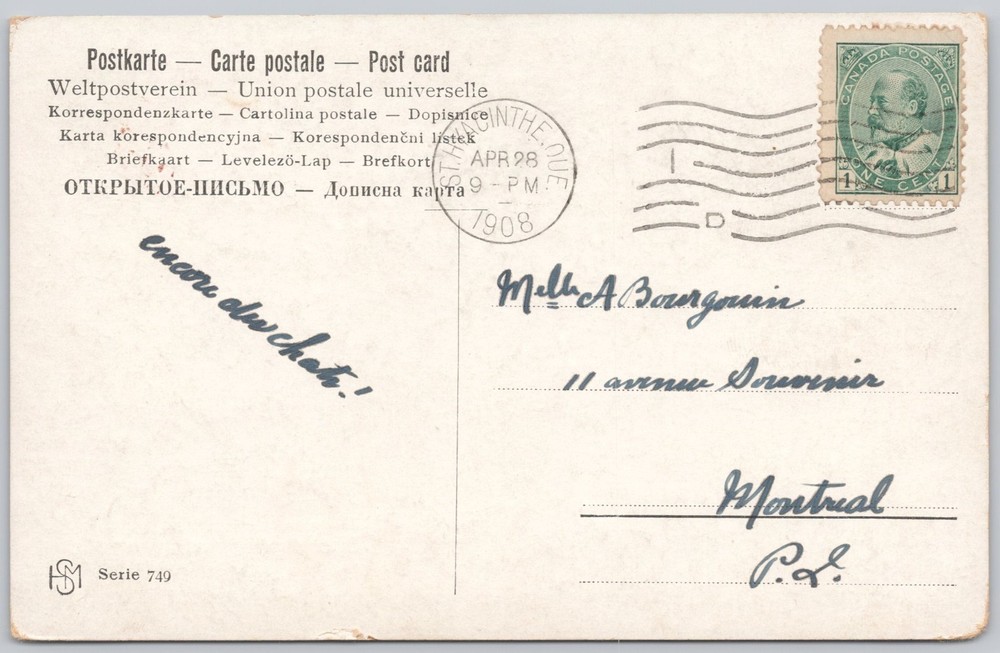 Postkarte — Carte postale — Post card
Weltpostverein — Union postale universelle
Korrespondenzkarte — Cartolina postale — Dopisnice
Karta korespondencyjna — Korespondenční lístek
Briefkaart — Levelező-Lap — Brefkort
ОТКРЫТОЕ-ПИСЬМО — Дописна карта
ST. HYACINTHE. QUE.
APR 28
9 - PM
1908
I
D
CANADA POSTAGE
1 ONE CENT 1
encore des chats!!
Melle A Bourgouin
11 avenue Souvenir
Montreal
P. Q.
HSM Serie 749